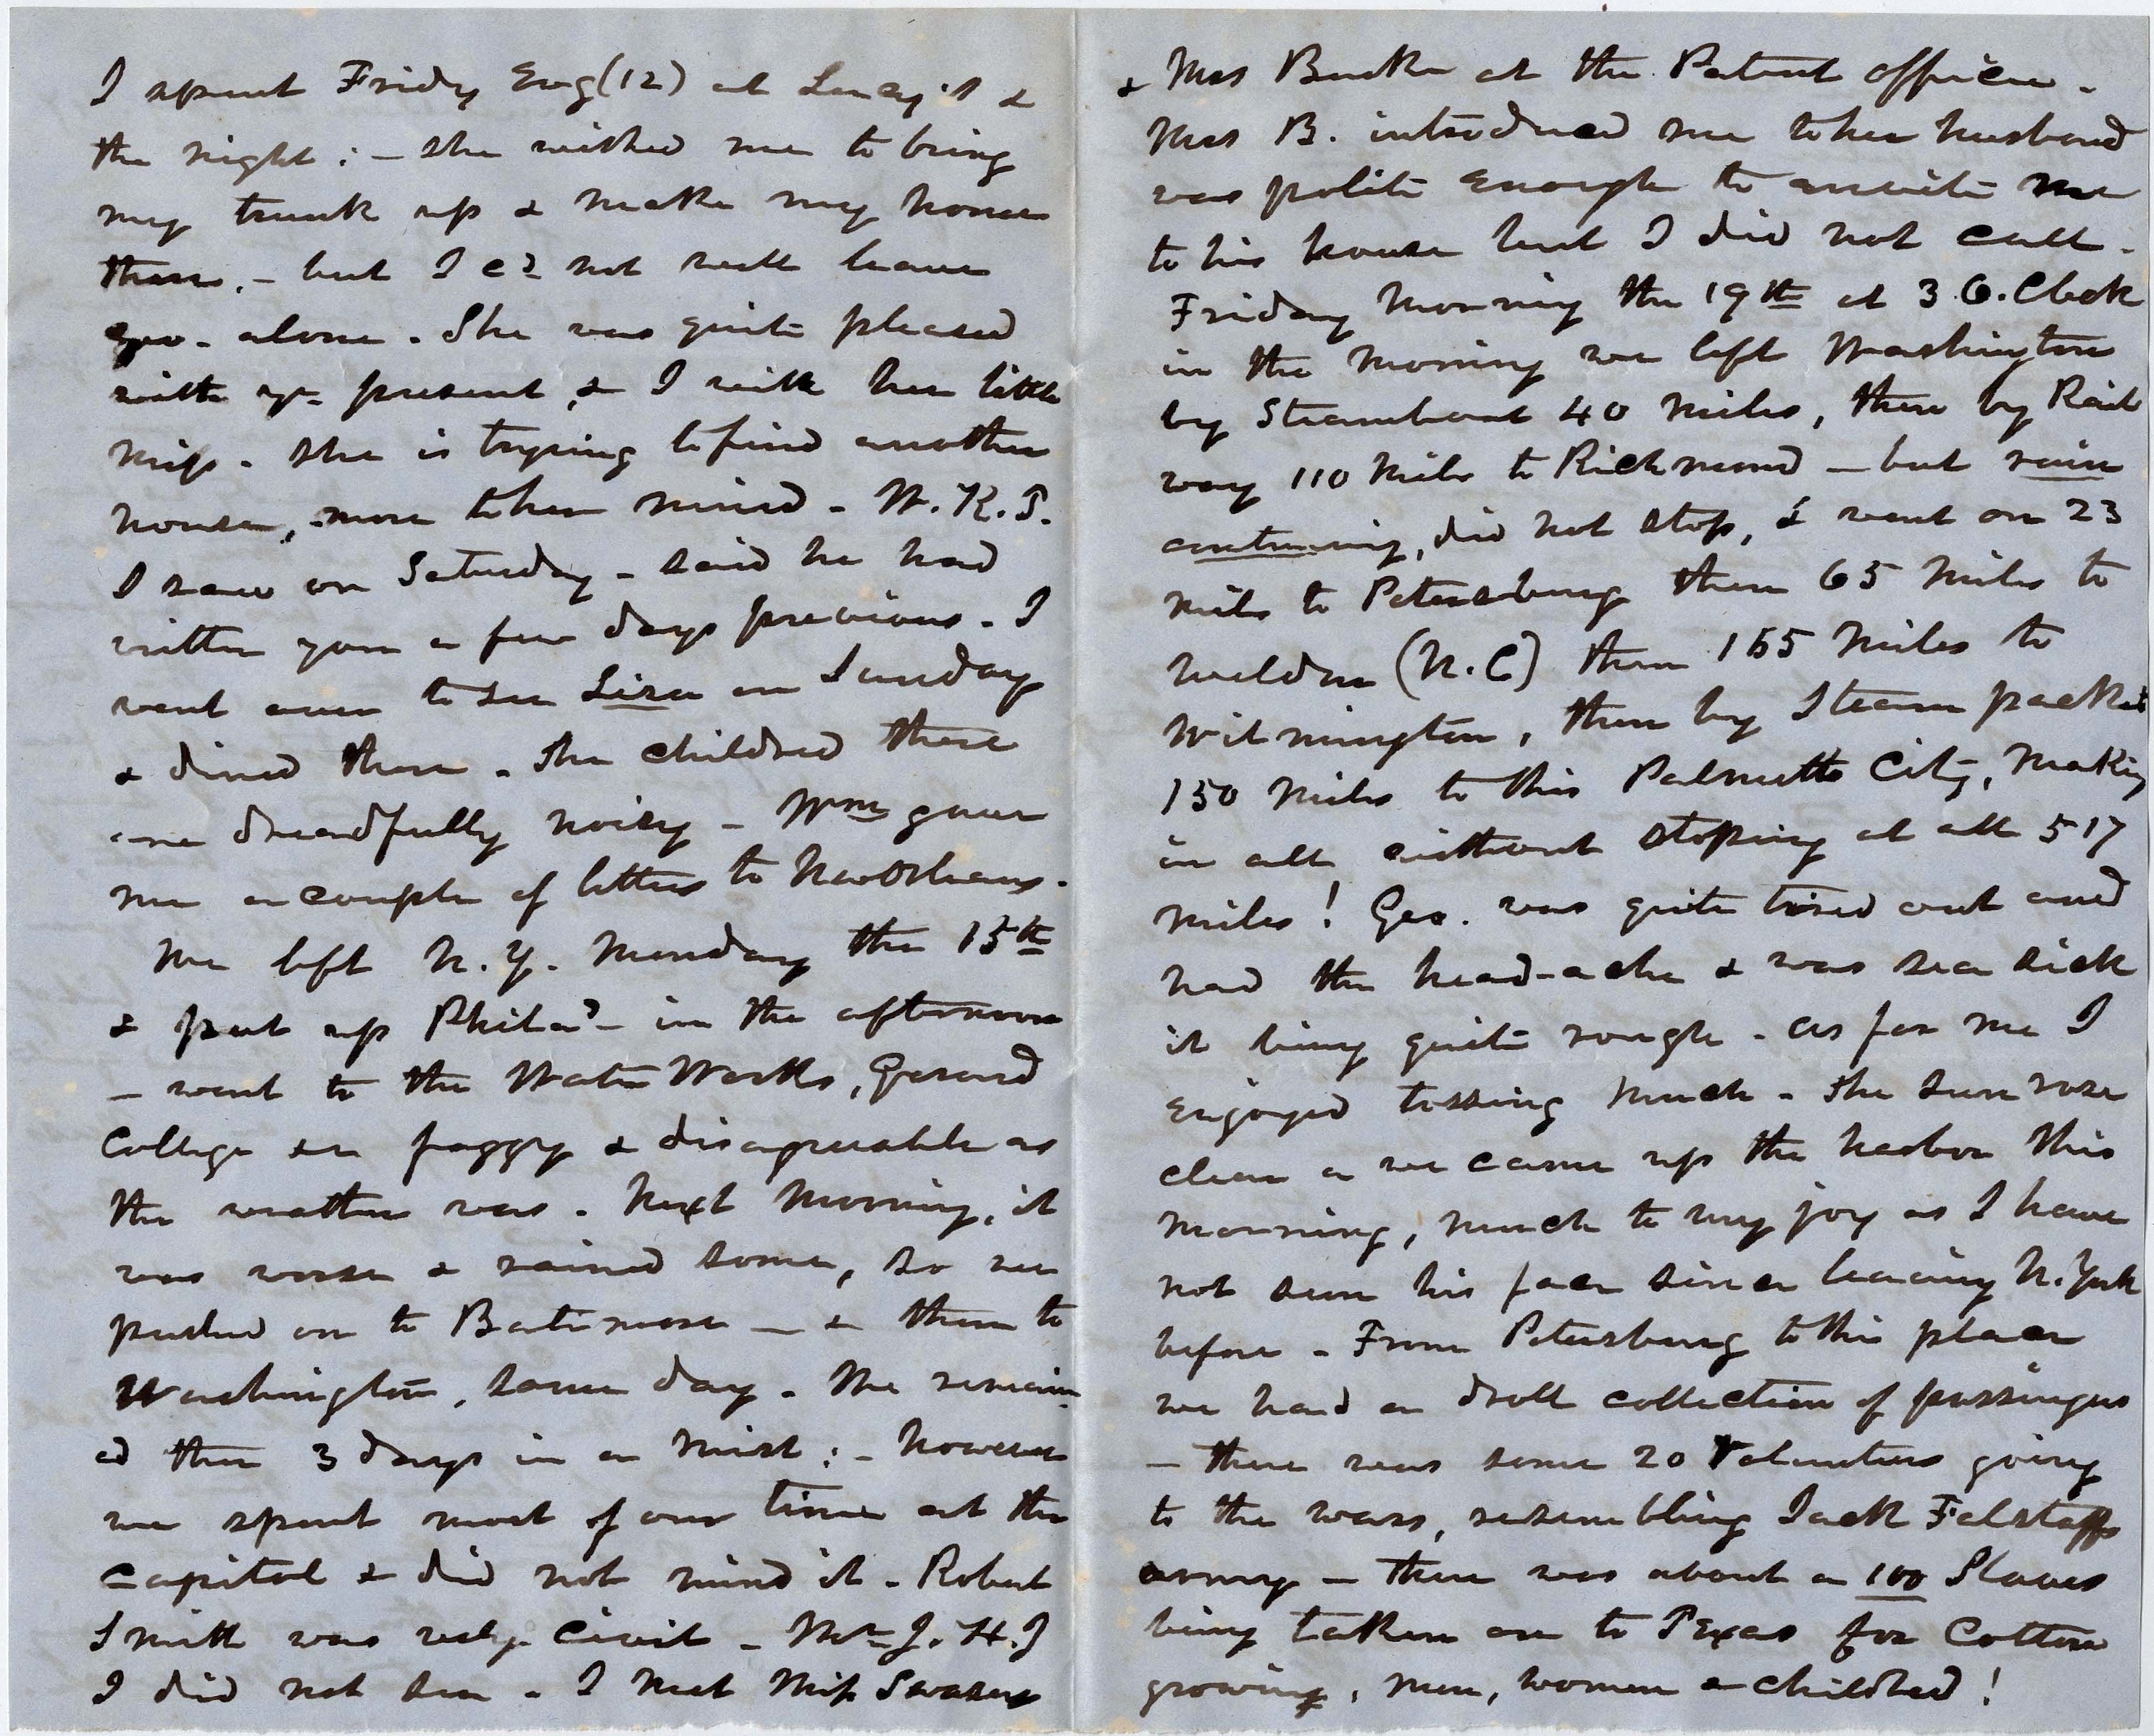 I spent Friday Evg (12) at Lucy's &
the night : – she wished me to bring
my trunk up & make my home
there, – but I cd not well leave
Geo. alone. She was quite pleased
with yr present, & I with her little
miss. She is trying to find another
house, more to her mind – W. K. S.
I saw on Saturday – said he had
written you a few days previous. I
went over to see Liza on Sunday
& dined there. The childred there
are dreadfully noisy – Wm gave
me a couple of letters to New Orleans.
We left N. Y. Monday the 15th
& put up Philad – in the afternoon
– went to the Water Works, Gerard
College &c foggy & disagreeable as
the weather was. Next morning, it
was worse & rained some, so we
pushed on to Batimore – & then to
Washington, same day. We remain
ed there 3 days in a mist : – however
we spent most of our time at the
Capitol & did not mind it. Robert
Smith was very civil – Mr J. H. J
I did not see. I met Miss Swazey
& Mrs Burke at the Patent office.
Mrs B. introduced me to her husband
was polite enough to invite me
to his house but I did not call.
Friday Morning the 19th at 3 O.Clock
in the morning we left Washington
by Steamboat 40 miles, then by Rail
way 110 miles to Richmond – but rain
continuing, did not stop, & went on 23
miles to Petersburg then 65 miles to
Weldon (N.C) then 165 miles to
Wilmington, then by Steam packet
150 miles to this Palmetto City, making
in all without stoping at all 517
miles! Geo. was quite tired out and
had the head-ache & was sea sick
it being quite rough. As for me I
enjoyed tossing much. The sun rose
clear as we came up the harbor this
morning, much to my joy as I have
not seen his face since leaving N. York
before. From Petersburg to this place
we had a droll collection of passingers
– there was some 20 Volunteers going
to the wars, resembling Jack Falstaffs
army – there was about a 100 Slaves
being taken on to Texas for Cotton
growing, men, women & childred!